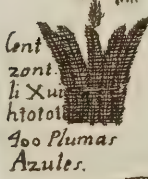 Cent
zont.
li Xui
htotol
400 Plumas
Azules.